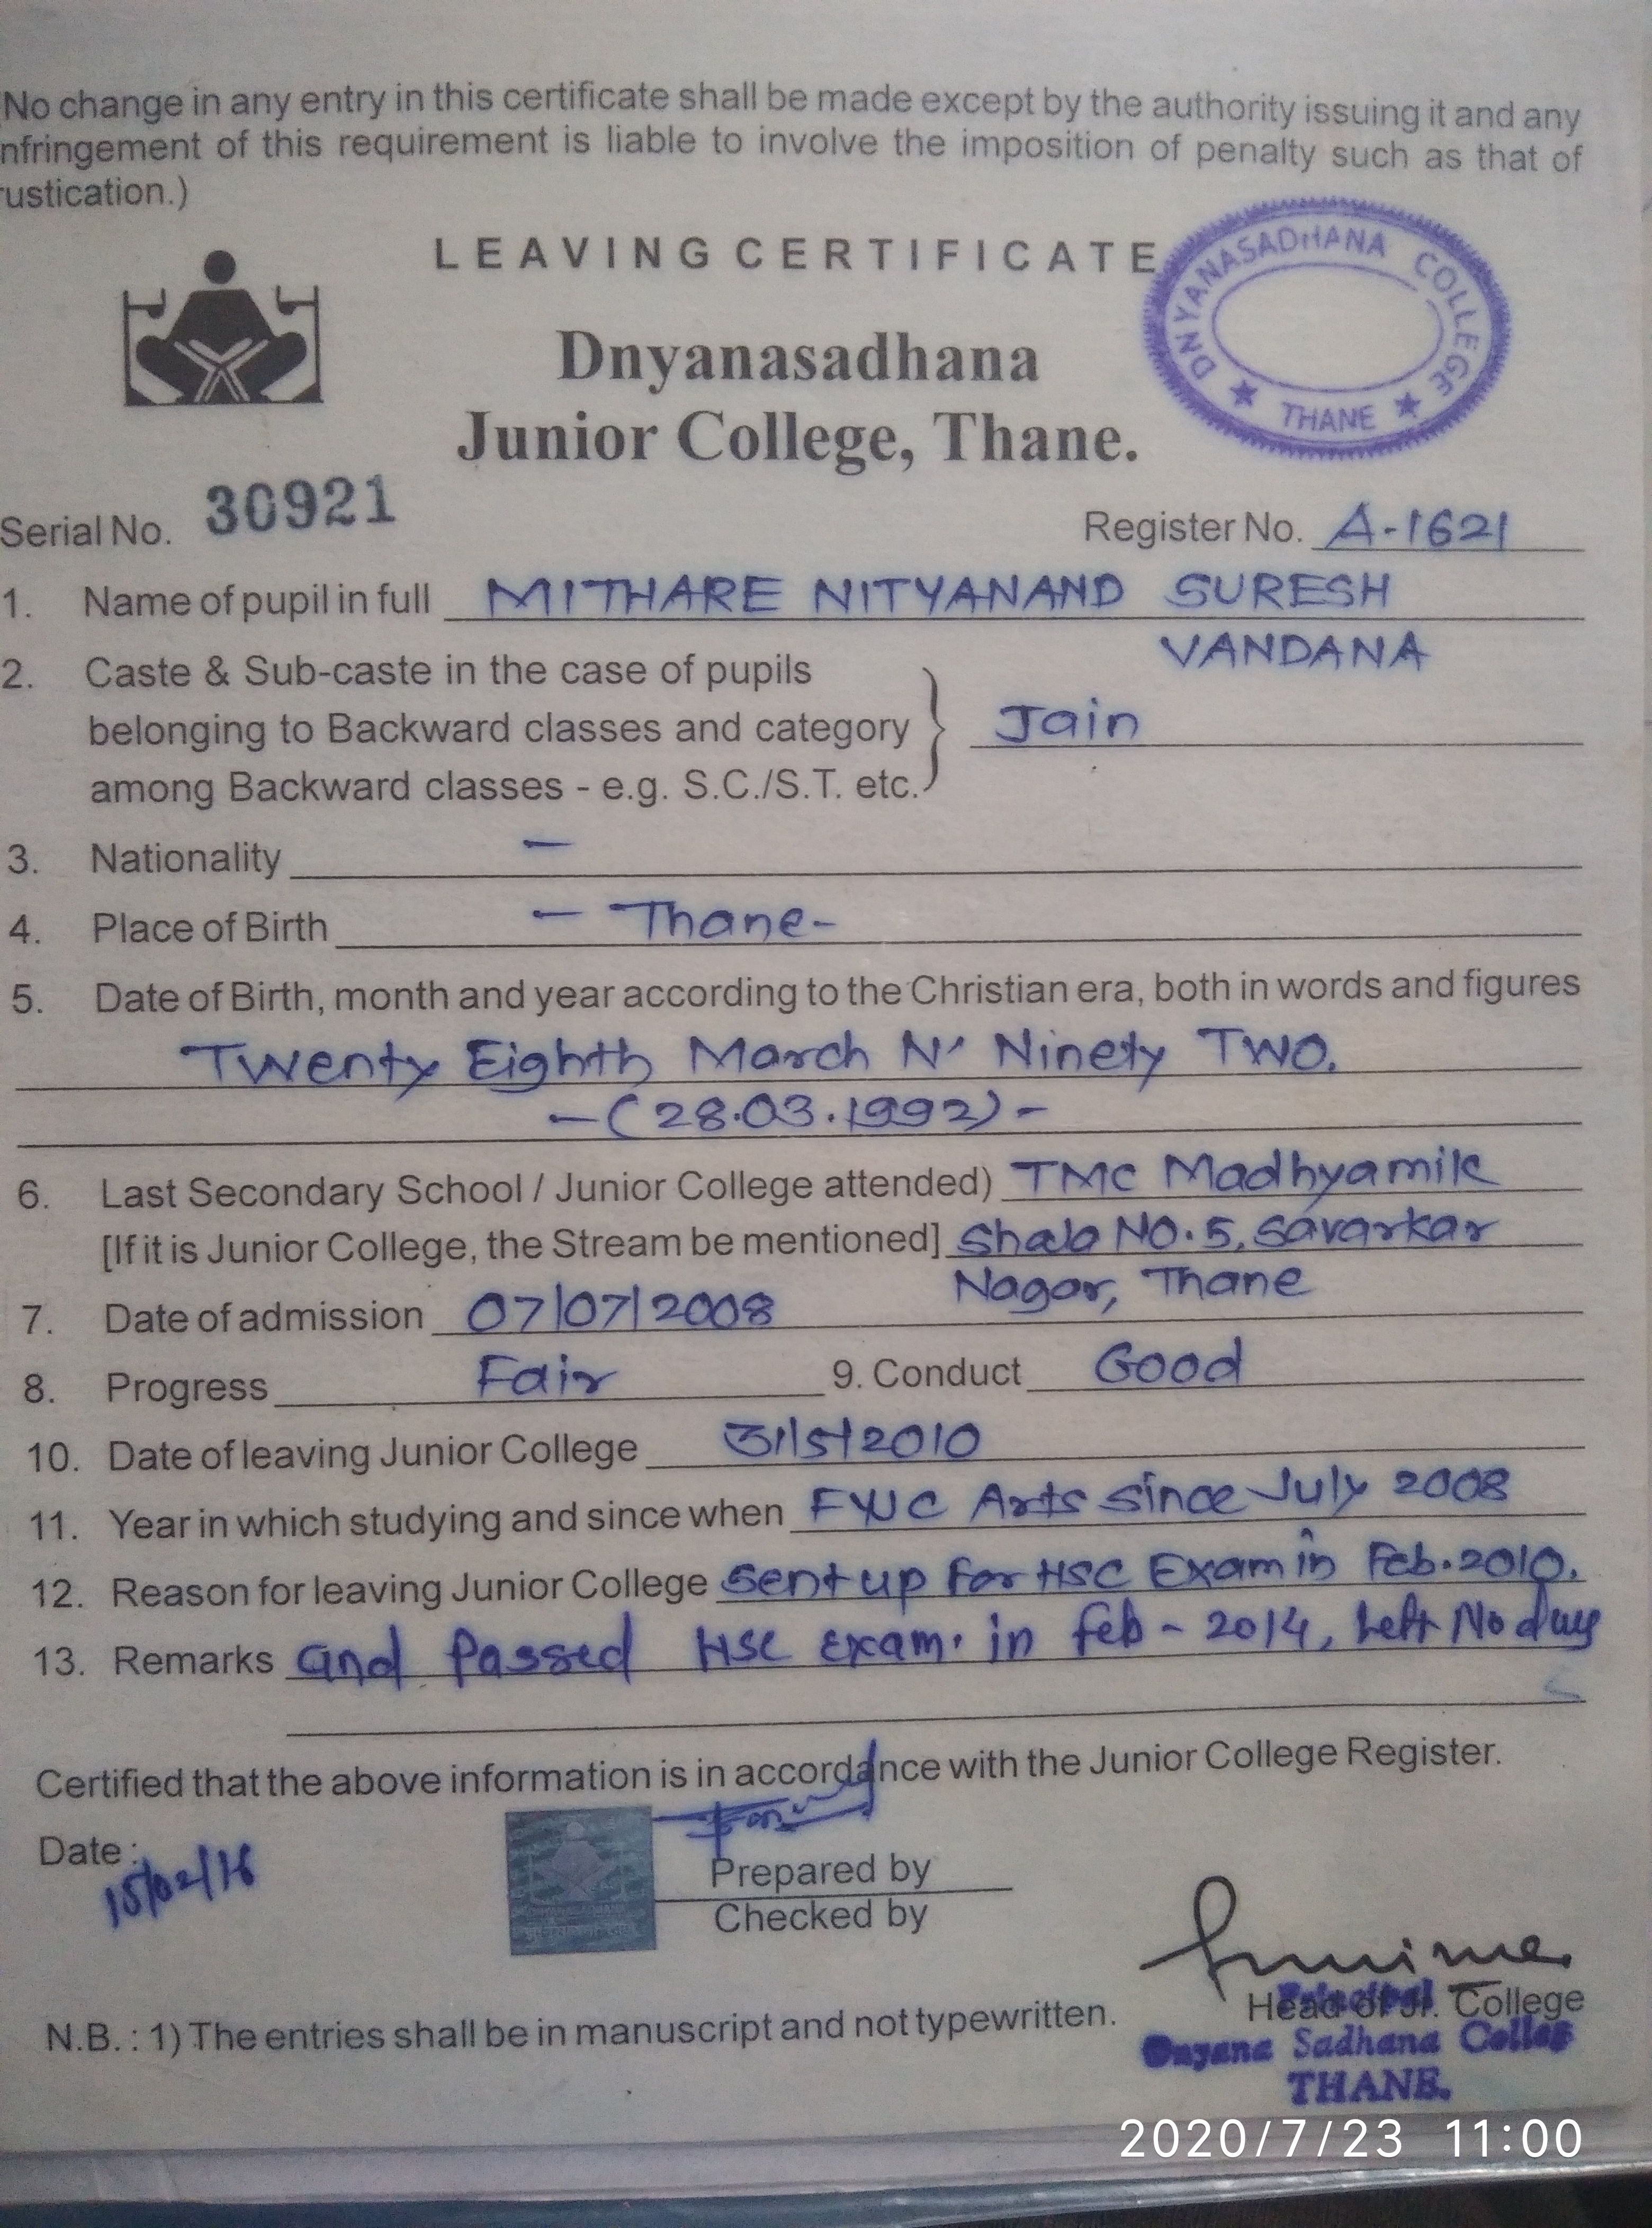 (No change in any entry in this certificate shall be made except by the authority issuing it and any
nfringement of this requirement is liable to involve the imposition of penalty such as that of
rustication.)
LEAVING CERTIFICATE
DNYANASADHANA COLLEGE
★ THANE ★
Dnyanasadhana
Junior College, Thane.
Serial No. 30921
Register No. A-1621
1. Name of pupil in full MITHARE NITYANAND SURESH
VANDANA
2. Caste & Sub-caste in the case of pupils
belonging to Backward classes and category } Jain
among Backward classes - e.g. S.C./S.T. etc.
3. Nationality —
4. Place of Birth — Thane-
5. Date of Birth, month and year according to the Christian era, both in words and figures
Twenty Eighth March N' Ninety Two.
—(28.03.1992)-
6. Last Secondary School / Junior College attended) TMC Madhyamik
[If it is Junior College, the Stream be mentioned] Shala NO.5, Savarkar
Nagar, Thane
7. Date of admission 07/07/2008
8. Progress Fair 9. Conduct Good
10. Date of leaving Junior College 31/5/2010
11. Year in which studying and since when FYJC Arts since July 2008
12. Reason for leaving Junior College Sent up for HSC Exam in Feb.2010.
13. Remarks and Passed HSC Exam. in feb - 2014, Left No dues
Certified that the above information is in accordance with the Junior College Register.
Date : 15/02/16
Prepared by
Checked by
Head of Jr. College
Principal
Dnyana Sadhana College
THANE.
N.B. : 1) The entries shall be in manuscript and not typewritten.
2020/7/23 11:00